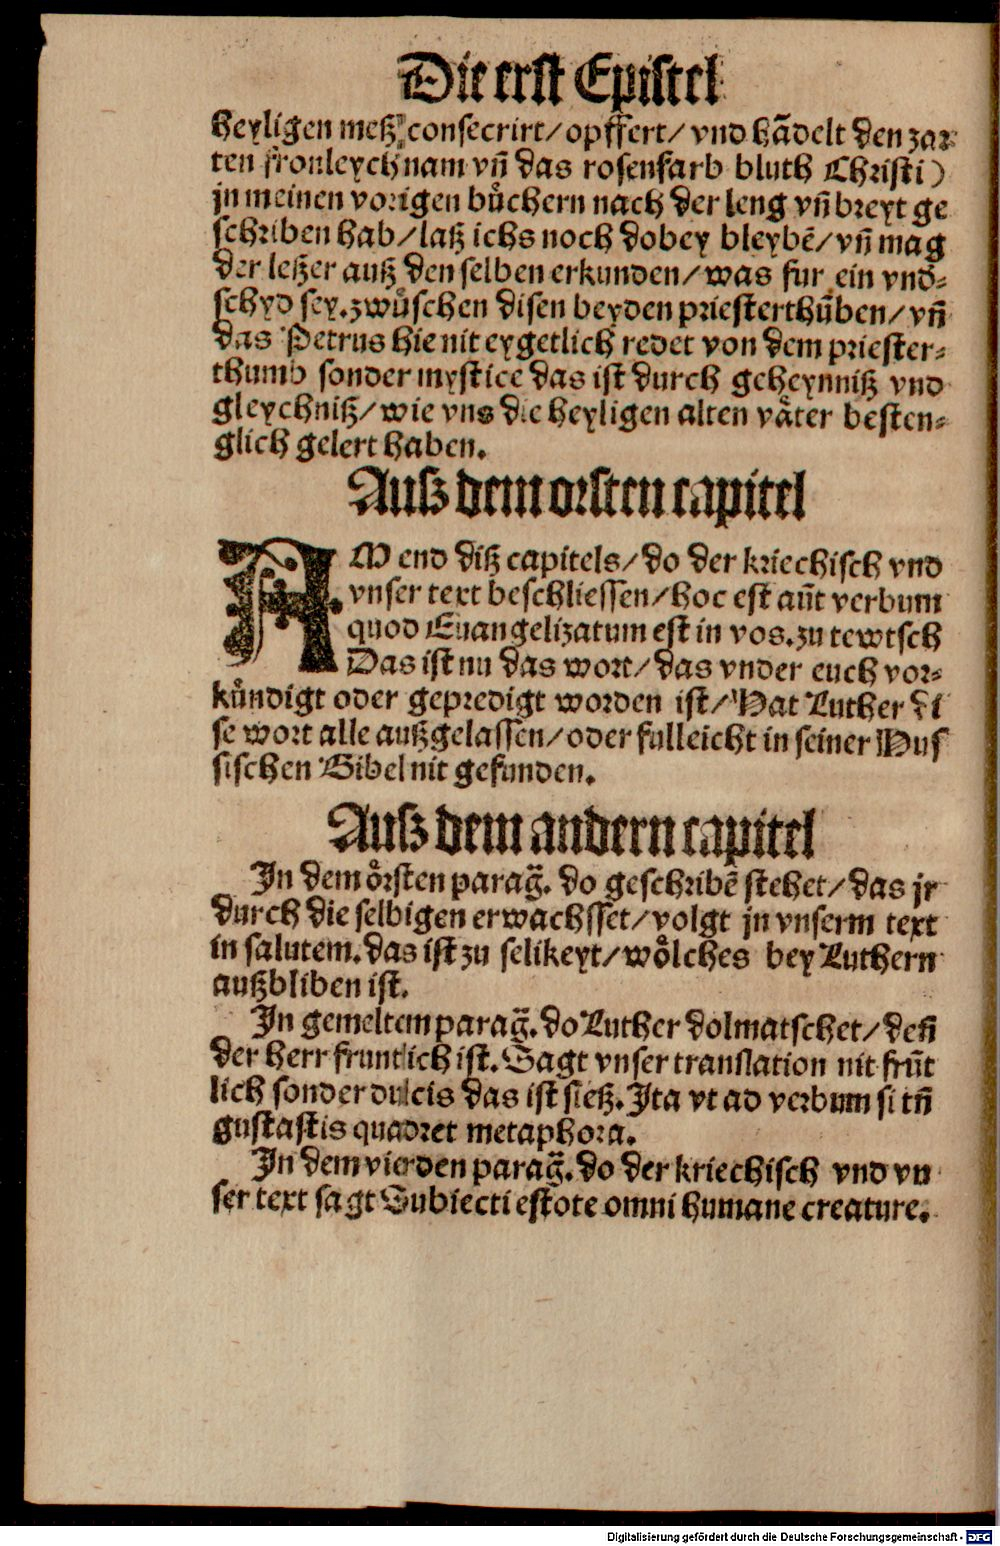 Die erst Epistel
heyligen meß consecrirt/opffert/vnd hãdelt den zar-
ten fronleychnam vñ das rosenfarb bluth Christi)
jn meinen vorigen bůchern nach der leng vñ breyt ge
schriben hab/laß ichs noch dobey bleybẽ/vñ mag
der leßer auß den selben erkunden/was fur ein vnd-
schyd sey.zwůschen disen beyden priesterthũben/vñ
das Petrus hie nit eygetlich redet von dem priester-
thumb sonder mystice das ist durch geheynniß vnd
gleychniß/wie vns die heyligen alten våter besten-
glich gelert haben.
Auß dem orsten capitel
AM end diß capitels/do der kriechisch vnd
vnser text beschliessen/hoc est aũt verbum
quod Euangelizatum est in vos.zu tewtsch
Das ist nu das wort/das vnder euch vor-
kůndigt oder gepredigt worden ist/Hat Luther di
se wort alle außgelassen/oder fulleicht in seiner Hus
sischen Bibel nit gefunden.
Auß dem andern capitel
In dem o̊rsten parag̃. do geschribẽ stehet/das jr
durch die selbigen erwachsset/volgt jn vnserm text
in salutem.das ist zu selikeyt/wo̊lches bey Luthern
außbliben ist.
In gemeltem parag̃.do Luther dolmatschet/deñ
der herr fruntlich ist.Sagt vnser translation nit frũt
lich sonder dulcis das ist sieß.Ita vt ad verbum si tñ
gustastis quadret metaphora.
In dem vierden parag̃.do der kriechisch vnd vn
ser text sagt Subiecti estote omni humane creature.
Digitalisierung gefördert durch die Deutsche Forschungsgemeinschaft - DFG